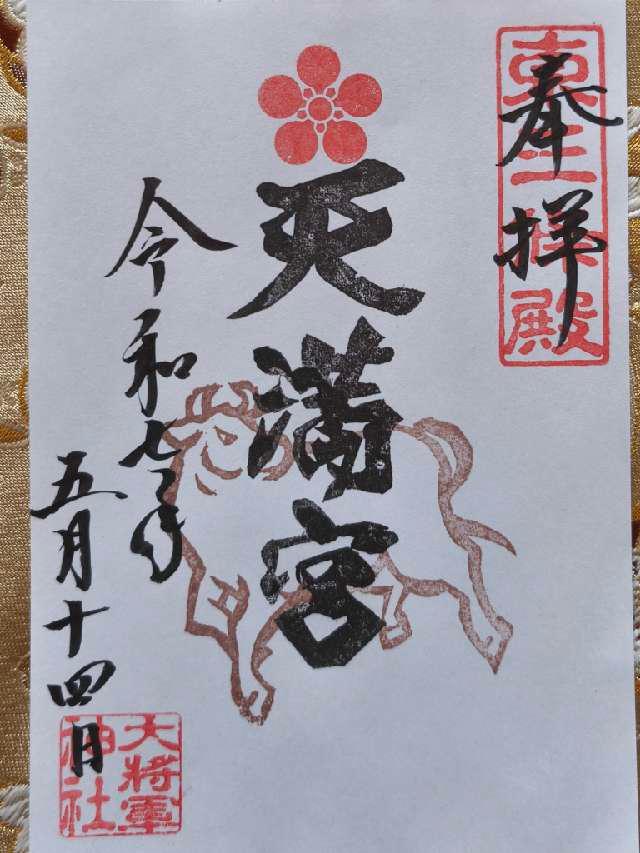 奉拝
東三條殿
天満宮
令和七年
五月十四日
大將軍
神社